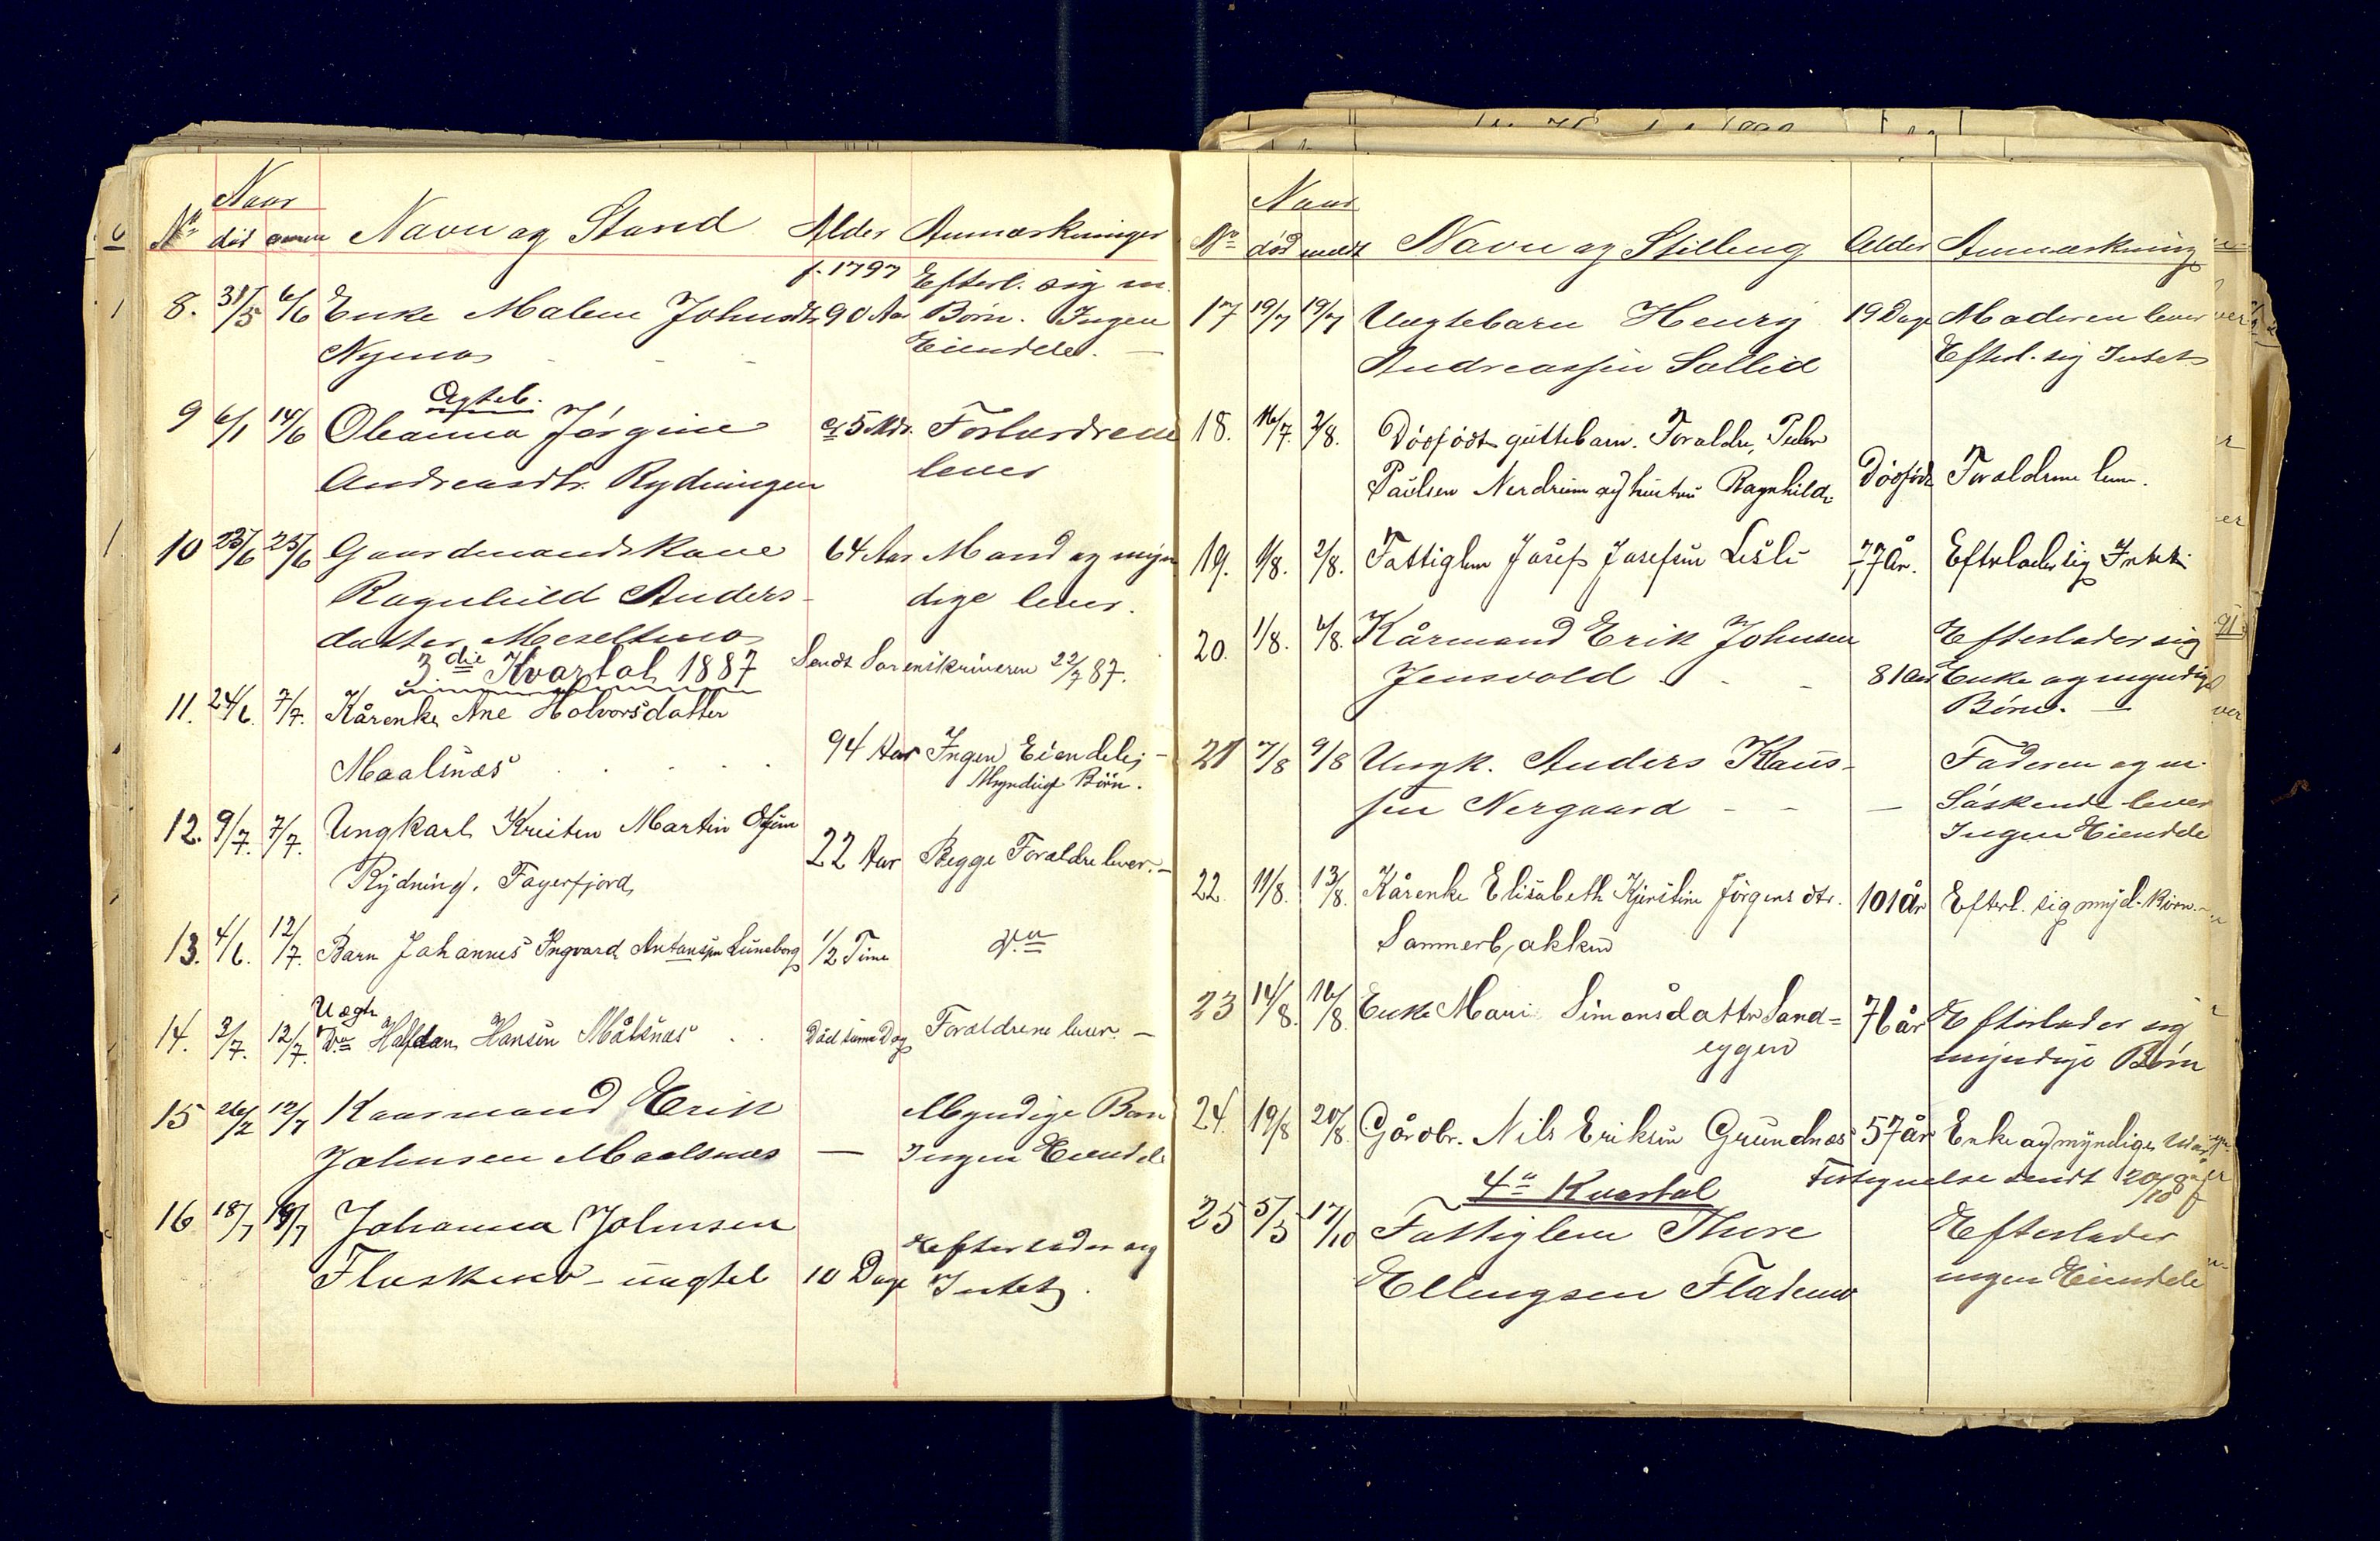 Naar
No død anm Navn og Stand Alder Anmærkninger
8. 31/5 6/6 Enke Malene Johnsdtr 90 Aar f. 1797 Efterl. sig m.
Børn. Ingen
Nymo Eiendele. —
9 6/1 14/6 Oleanna Jørgine Ægteb. 5 Mdr. Forældrene
Andreasdtr. Rydningen lever
10 23/6 25/6 Gaardmandskone 64 Aar Mand og myn
Ragnhild Anders- dige lever.
datter Moseltmo
3die Kvartal 1887 Sendt Sorenskriveren 22/7 87.
11. 24/6. 7/7. Kårenke Ane Halvorsdatter
Maalsnæs 94 Aar Ingen Eiendele; —
Myndige Børn.
12. 9/7. 7/7. Ungkarl Kristen Martin
Rydning. Fagerfjord, 22 Aar Begge Forældre lever. —
13. 4/6. 12/7. Barn Johannes Ingvard Antonsen Lüneborg 1/2 Time Do
14. 3/7. 12/7. Uægte Do Halfdan Hansen Målsnæs Død samme Dag Forældrene lever. —
15 26/2 12/7 Kaarmand Erik Myndige Børn
Johnsen Maalsnæs — Ingen Eiendele
16 18/7 19/7 Johanna Johnsen Efterlader sig
Flaskmo - uægteb 10 Dage Intet.
Naar
No død meldt Navn og Stilling Alder Anmærkning
17 19/7 19/7 Uægtebarn Henry 19 Dage Moderen lever
Andreassen Sollid Efterl. sig Intet
18. 16/7. 2/8. Dødfødt guttebarn. Forældre, Peder
Paulsen Nerdrum og hustru Ragnhild. Dødfødt Forældrene lever.
19. 1/8. 2/8. Fattiglem Josef Josefsen Lesli 77 År. Efterlader sig Intet
20. 1/8. 4/8. Kårmand Erik Johnsen Efterlader sig
Jensvold - - 81 Aar Enke og myndige
Børn. —
21 7/8 9/8 Ungk. Anders Klaus- Faderen og m.
sen Nergaard - - — Søskende lever
Ingen Eiendele
22. 11/8. 13/8. Kårenke Elisabeth Kjerstine Jørgensdtr. 101 År Efterl. sig mynd. Børn.
Sommerbakken
23 14/8. 16/8. Enke Mari Simonsdatter Sand= 76 år Efterlader sig
eggen myndige Børn
24. 19/8 20/8. Gårdbr. Nils Eriksen Grundnæs 57 år Enke og myndige
4de Kvartal Fortegnelse sendt 20/10 87
25 5/5 17/10 Fattiglem Thore Efterlader
Ellingsen Flatmo ingen Eiendele